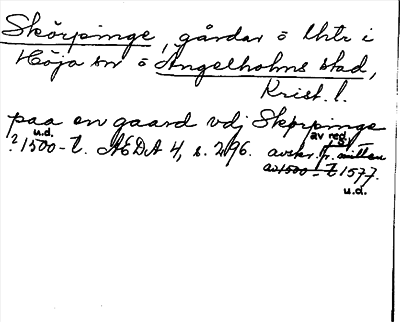 Skörpinge, gårdar o lhtr i
Höja sn o Ängelholms stad,
Krist. l.
paa en gaard vdj Skørpinge
u.d. av red.
? 1500-t. ÆDA 4, s. 296. avskr. fr. mitten
av 1500-t 1577.
u.d.